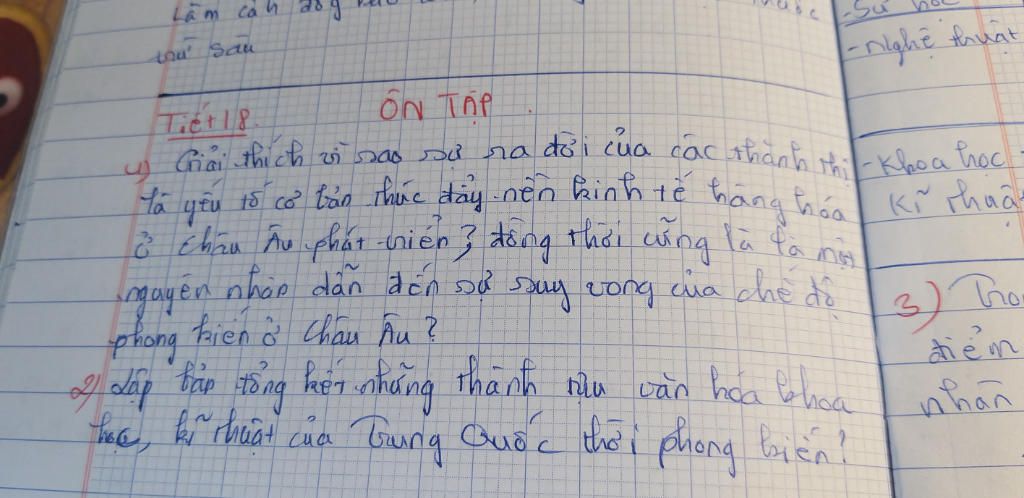 làm cản
thứ sáu
Tiết 18. ÔN TẬP.
1) Giải thích vì sao sự ra đời của các thành thị
là yếu tố cơ bản thúc đẩy nền kinh tế hàng hóa
ở châu Âu phát triển, đồng thời cũng là là một
nguyên nhân dẫn đến sự suy vong của chế độ
phong kiến ở Châu Âu?
2) Lập bản tổng kết những thành tựu văn hóa khoa
học, kĩ thuật của Trung Quốc thời phong kiến?
- Sử học
- Nghệ thuật
- Khoa học
kĩ thuậ
3)
điểm
nhân